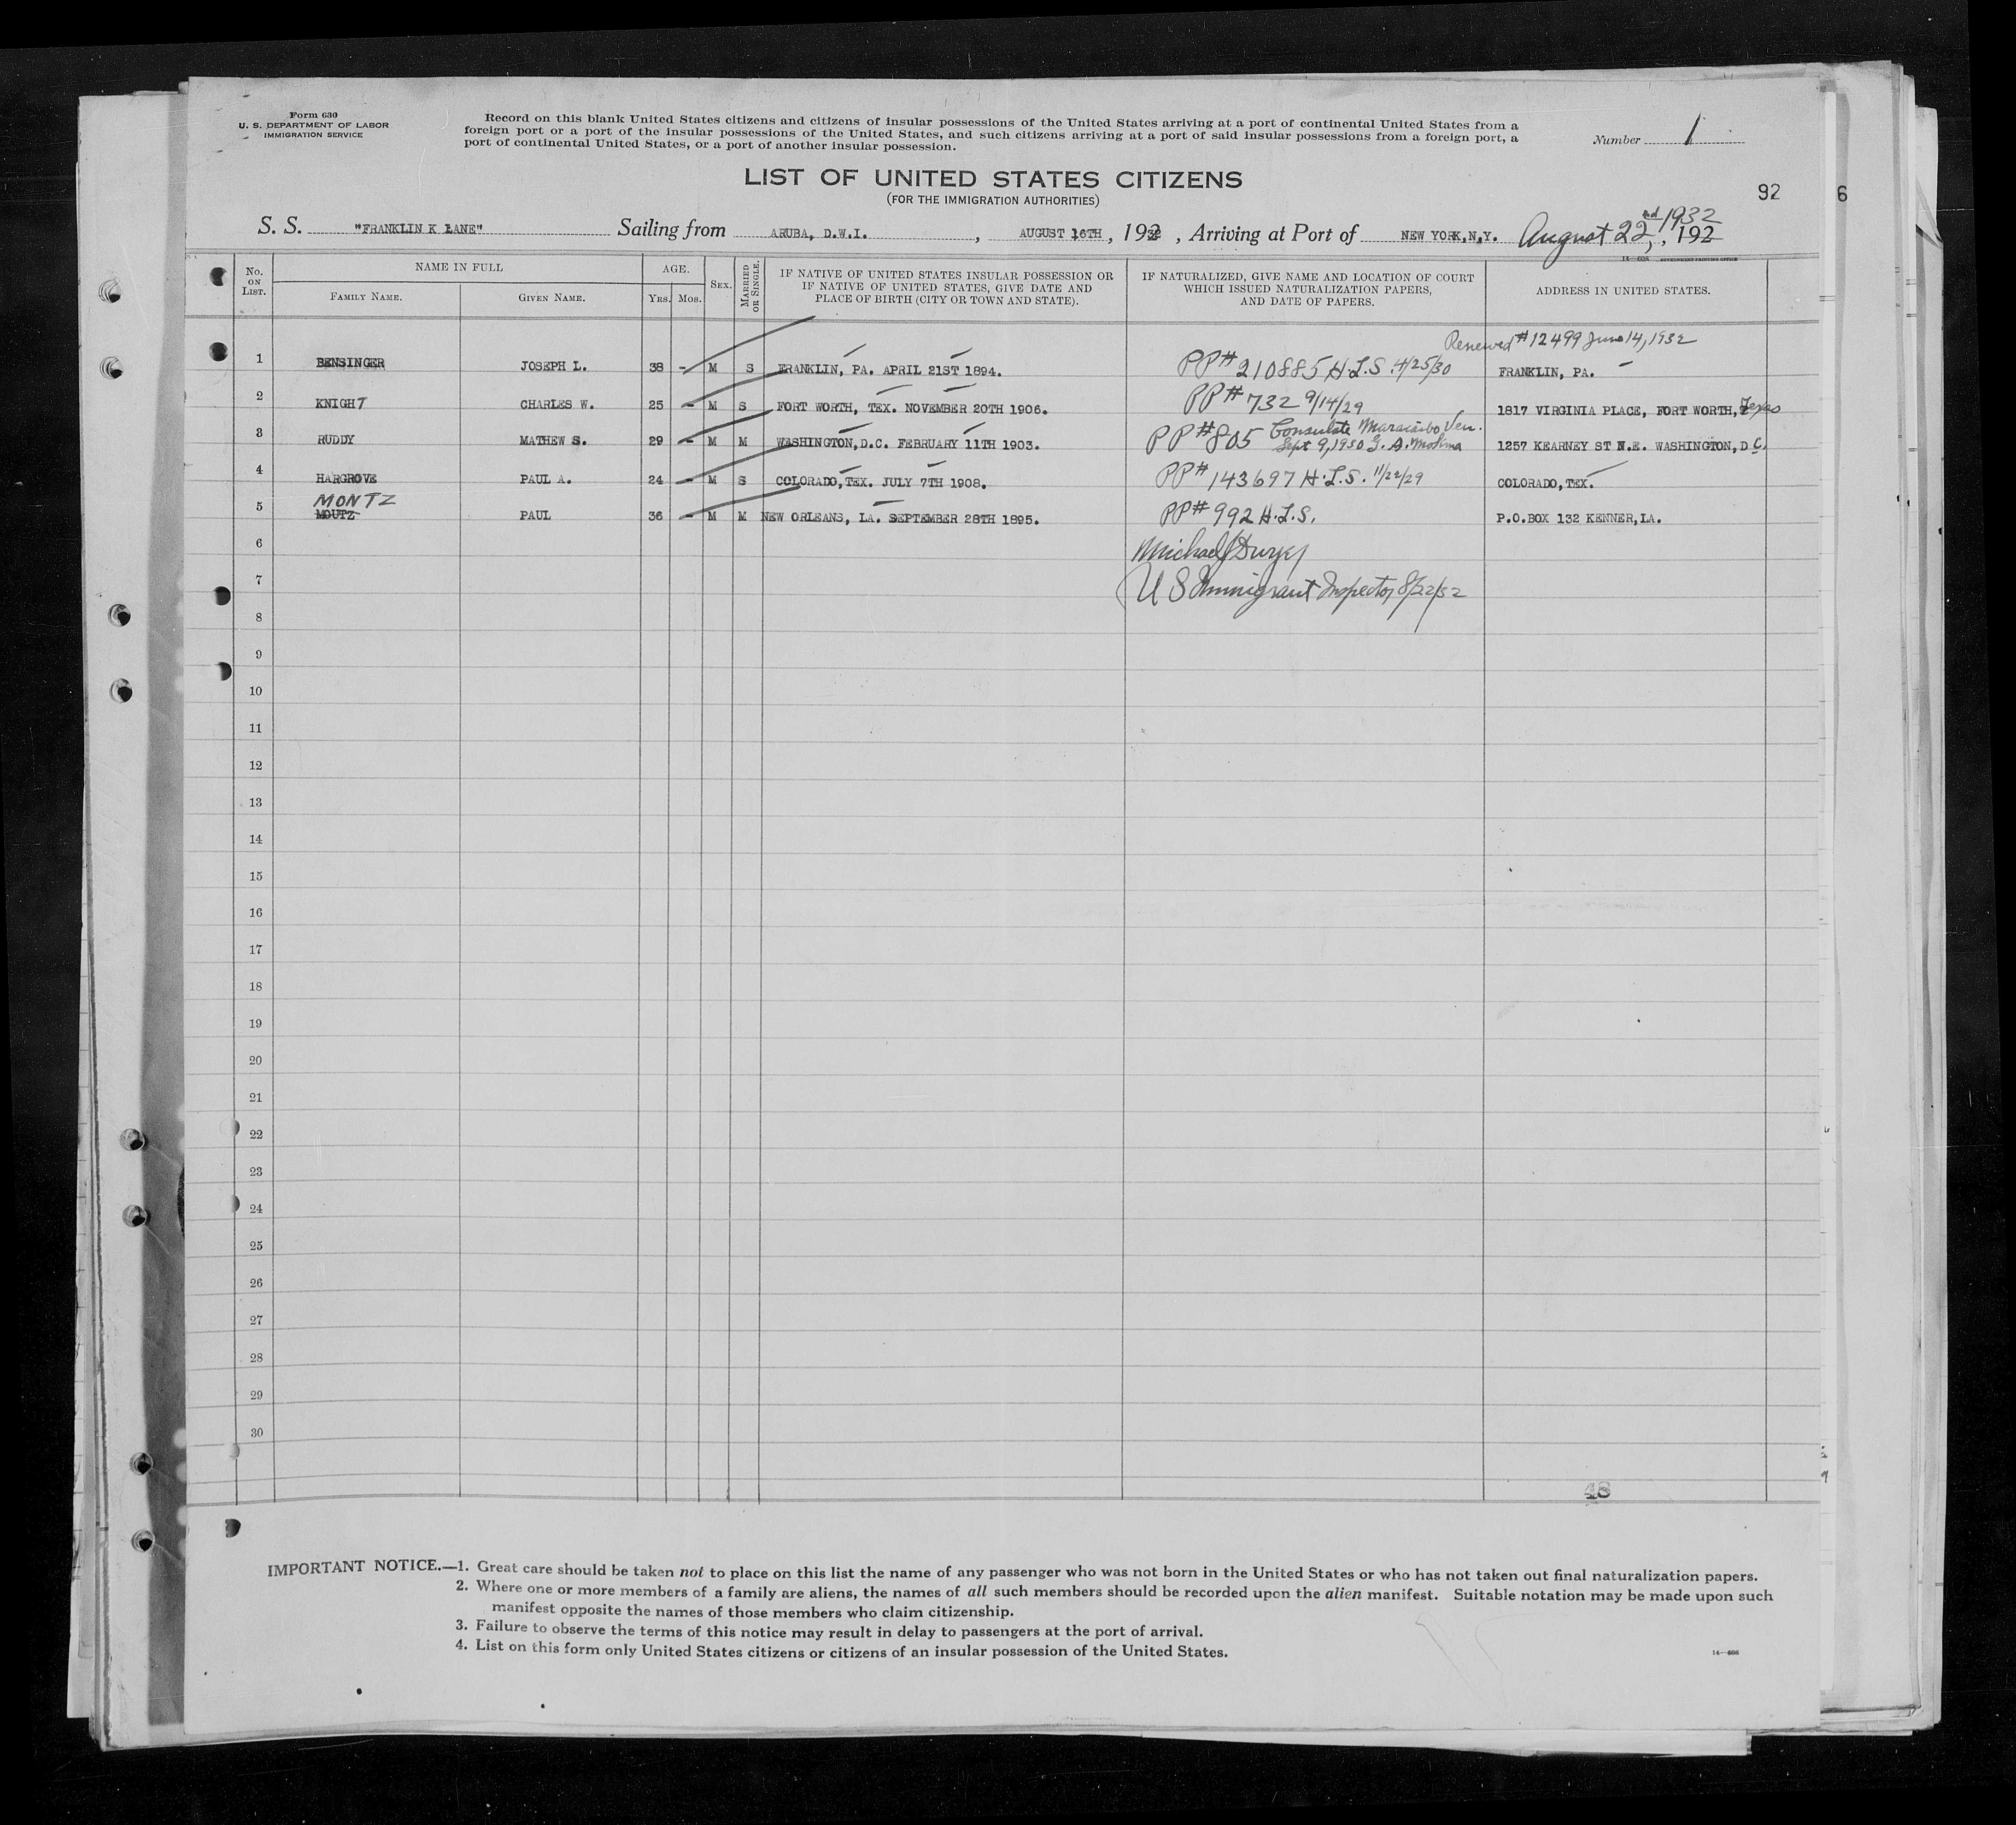 Form 630
U. S. DEPARTMENT OF LABOR
IMMIGRATION SERVICE
Record on this blank United States citizens and citizens of insular possessions of the United States arriving at a port of continental United States from a
foreign port or a port of the insular possessions of the United States, and such citizens arriving at a port of said insular possessions from a foreign port, a
port of continental United States, or a port of another insular possession.
Number 1
LIST OF UNITED STATES CITIZENS
(FOR THE IMMIGRATION AUTHORITIES)
92 6
S. S. "FRANKLIN K LANE" Sailing from ARUBA, D.W.I. , AUGUST 16TH , 1932 , Arriving at Port of NEW YORK,N,Y. August 22nd, 1932 , 192
14—608 GOVERNMENT PRINTING OFFICE
No. ON LIST. NAME IN FULL AGE. SEX. MARRIED OR SINGLE. IF NATIVE OF UNITED STATES INSULAR POSSESSION OR IF NATIVE OF UNITED STATES, GIVE DATE AND PLACE OF BIRTH (CITY OR TOWN AND STATE). IF NATURALIZED, GIVE NAME AND LOCATION OF COURT WHICH ISSUED NATURALIZATION PAPERS, AND DATE OF PAPERS. ADDRESS IN UNITED STATES.
FAMILY NAME. GIVEN NAME. YRS. MOS.
Renewed #12499 June 14, 1932
1 BENSINGER JOSEPH L. 38 - M S FRANKLIN, PA. APRIL 21ST 1894. PP# 210885 H.L.S. 4/25/30 FRANKLIN, PA.
2 KNIGHT CHARLES W. 25 - M S FORT WORTH, TEX. NOVEMBER 20TH 1906. PP# 732 9/14/29 1817 VIRGINIA PLACE, FORT WORTH, Texas
3 RUDDY MATHEW S. 29 - M M WASHINGTON,D.C. FEBRUARY 11TH 1903. PP #805 Consulate Maracaibo Ven. Sept 9, 1930 G. A. Molina 1257 KEARNEY ST N.E. WASHINGTON,D C.
4 HARGROVE PAUL A. 24 - M S COLORADO,TEX. JULY 7TH 1908. PP# 143697 H.L.S. 11/22/29 COLORADO,TEX.
MONTZ
5 MOUTZ PAUL 36 - M M NEW ORLEANS, LA. SEPTEMBER 28TH 1895. PP# 992 H.L.S. P.O.BOX 132 KENNER,LA.
6 Michael J Dwyer
7 U S Immigrant Inspector 8/22/32
8
9
10
11
12
13
14
15
16
17
18
19
20
21
22
23
24
25
26
27
28
29
30
48
IMPORTANT NOTICE.—1. Great care should be taken not to place on this list the name of any passenger who was not born in the United States or who has not taken out final naturalization papers.
2. Where one or more members of a family are aliens, the names of all such members should be recorded upon the alien manifest. Suitable notation may be made upon such
manifest opposite the names of those members who claim citizenship.
3. Failure to observe the terms of this notice may result in delay to passengers at the port of arrival.
4. List on this form only United States citizens or citizens of an insular possession of the United States.
14—608